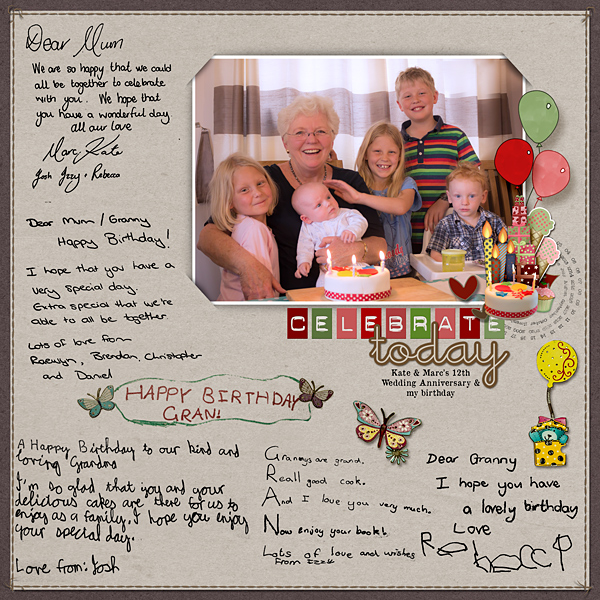 Dear Mum
We are so happy that we could
all be together to celebrate
with you. We hope that
you have a wonderful day
all our love
Marc Kate
Josh Izzy + Rebecca
Dear Mum / Granny
Happy Birthday!
I hope that you have a
very special day.
Extra special that we're
able to all be together
Lots of love from
Roewyn, Brendan, Christopher
and Daniel
HAPPY BIRTHDAY
GRAN!
A Happy Birthday to our kind and
loving Grandma
I'm so glad that you and your
delicious cakes are there for us to
enjoy as a family. I hope you enjoy
your special day.
Love from: Josh
CELEBRATE
today
Kate & Marc's 12th
Wedding Anniversary &
my birthday
Grannys are grand.
Reall good cook.
And I love you very much.
Now enjoy your book!
Lots of love and wishes
From Izzy
Dear Granny
I hope you have
a lovely birthday
Love
Rebecca